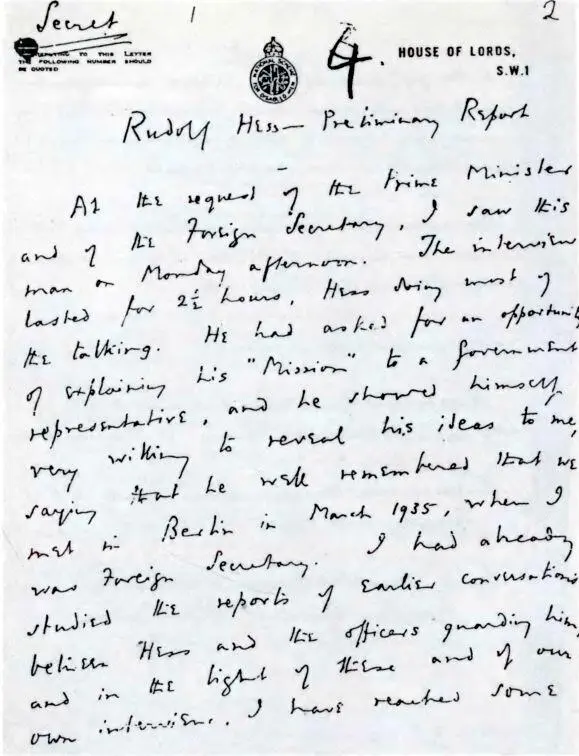 Secret
1
2
TO THIS LETTER
THE FOLLOWING NUMBER SHOULD
BE QUOTED
4.
HOUSE OF LORDS,
S.W.1
Rudolf Hess — Preliminary Report
At the request of the Prime Minister
and of the Foreign Secretary, I saw this
man on Monday afternoon. The interview
lasted for 2½ hours, Hess doing most of
the talking. He had asked for an opportunity
of explaining his "Mission" to a Government
representative, and he showed himself
very willing to reveal his ideas to me,
saying that he well remembered that we
met in Berlin in March 1935, when I
was Foreign Secretary. I had already
studied the reports of earlier conversations
between Hess and the officers guarding him,
and in the light of these and of our
own interview, I have reached some